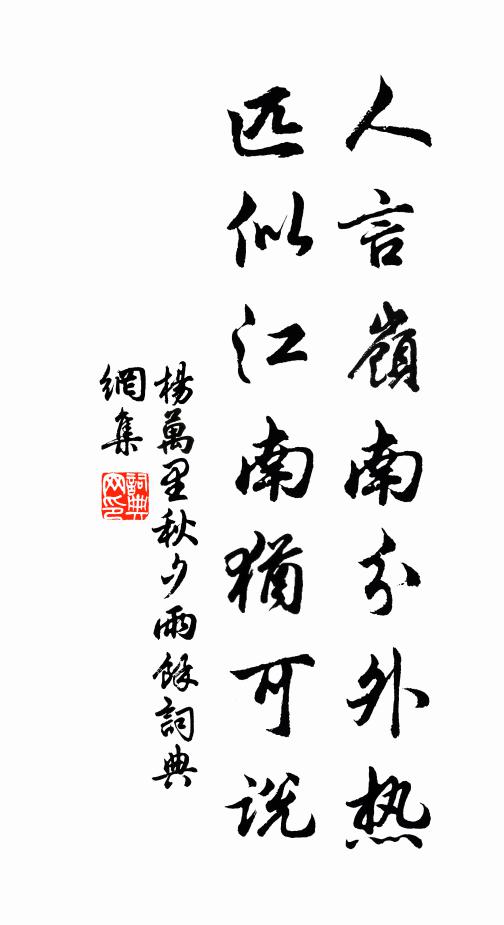 人言嶺南分外热
匹似江南猶可说
楊萬里秋夕雨餘詞典
網集
詞典網印